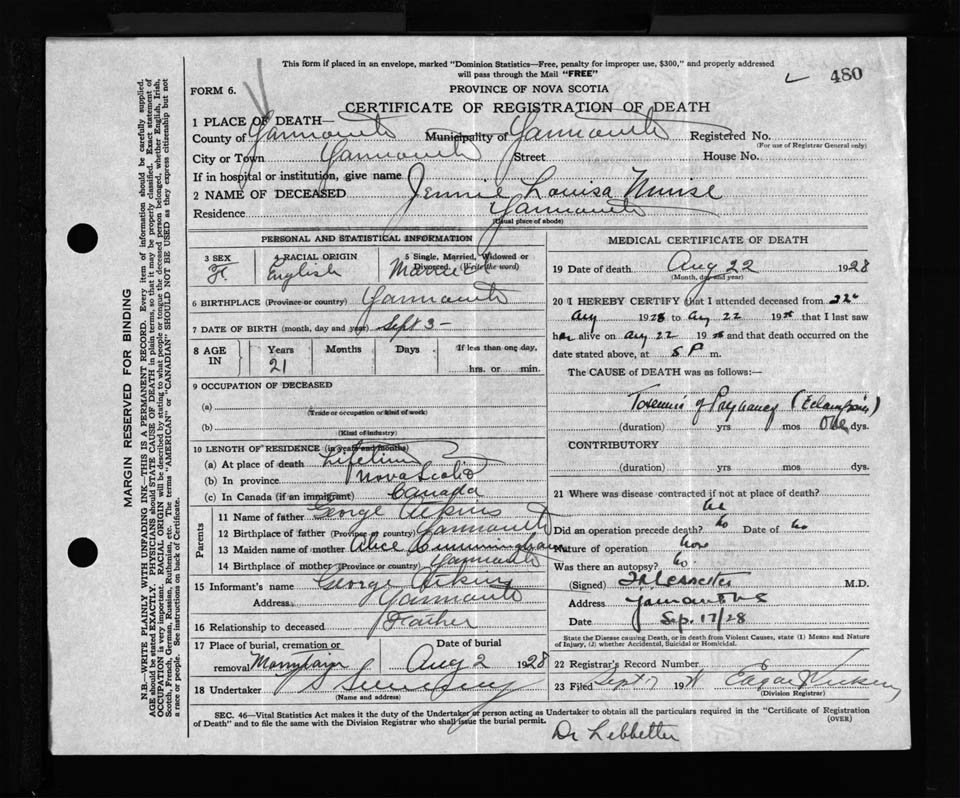 This form if placed in an envelope, marked "Dominion Statistics—Free, penalty for improper use, $300," and properly addressed
will pass through the Mail "FREE"
480
FORM 6.
PROVINCE OF NOVA SCOTIA
CERTIFICATE OF REGISTRATION OF DEATH
1 PLACE OF DEATH—
County of Yarmouth Municipality of Yarmouth Registered No.
(For use of Registrar General only)
City or Town Yarmouth Street House No.
If in hospital or institution, give name
2 NAME OF DECEASED Jennie Louisa Muise
Residence Yarmouth
(Usual place of abode)
PERSONAL AND STATISTICAL INFORMATION
3 SEX 4 RACIAL ORIGIN 5 Single, Married, Widowed or
Divorced (Write the word)
F English Married
6 BIRTHPLACE (Province or country) Yarmouth
7 DATE OF BIRTH (month, day and year) Sept 3 -
8 AGE IN Years Months Days If less than one day,
21 hrs. or min.
9 OCCUPATION OF DECEASED
(a)
(Trade or occupation or kind of work)
(b)
(Kind of industry)
10 LENGTH OF RESIDENCE (in years and months)
(a) At place of death Lifetime
(b) In province Nova Scotia
(c) In Canada (if an immigrant) Canada
Parents
11 Name of father George Atkins
12 Birthplace of father (Province or country) Yarmouth
13 Maiden name of mother Alice Cunningham
14 Birthplace of mother (Province or country) Yarmouth
15 Informant's name George Atkins
Address Yarmouth
16 Relationship to deceased Father
17 Place of burial, cremation or Date of burial
removal Aug 2 1928
18 Undertaker
(Name and address)
MEDICAL CERTIFICATE OF DEATH
19 Date of death Aug 22 1928
(Month, day and year)
20 I HEREBY CERTIFY that I attended deceased from 22
Aug 1928 to Aug 22 1928 that I last saw
her alive on Aug 22 1928 and that death occurred on the
date stated above, at 5 P m.
The CAUSE of DEATH was as follows:—
Toxemia of Pregnancy (Eclampsia)
(duration) yrs mos One dys.
CONTRIBUTORY
(duration) yrs mos dys.
21 Where was disease contracted if not at place of death?
Did an operation precede death? No Date of No
Nature of operation
Was there an autopsy? No
(Signed) M.D.
Address Yarmouth N S
Date Sep. 17/28
State the Disease causing Death, or in death from Violent Causes, state (1) Means and Nature
of Injury, (2) whether Accidental, Suicidal or Homicidal.
22 Registrar's Record Number
23 Filed Sept 17 1928
(Division Registrar)
SEC. 46—Vital Statistics Act makes it the duty of the Undertaker or person acting as Undertaker to obtain all the particulars required in the "Certificate of Registration
of Death" and to file the same with the Division Registrar who shall issue the burial permit.
(OVER)
Dr Lebbetter
MARGIN RESERVED FOR BINDING
N.B.—WRITE PLAINLY WITH UNFADING INK—THIS IS A PERMANENT RECORD. Every item of information should be carefully supplied.
AGE should be stated EXACTLY. PHYSICIANS should STATE CAUSE OF DEATH in plain terms, so that it may be properly classified. Exact statement of
OCCUPATION is very important. RACIAL ORIGIN will be described by stating to what people or tongue the deceased person belonged, whether English, Irish,
Scotch, French, German, Russian, Ruthenian, etc. The terms "AMERICAN" or "CANADIAN" SHOULD NOT BE USED as they express citizenship but not
a race or people. See instructions on back of Certificate.